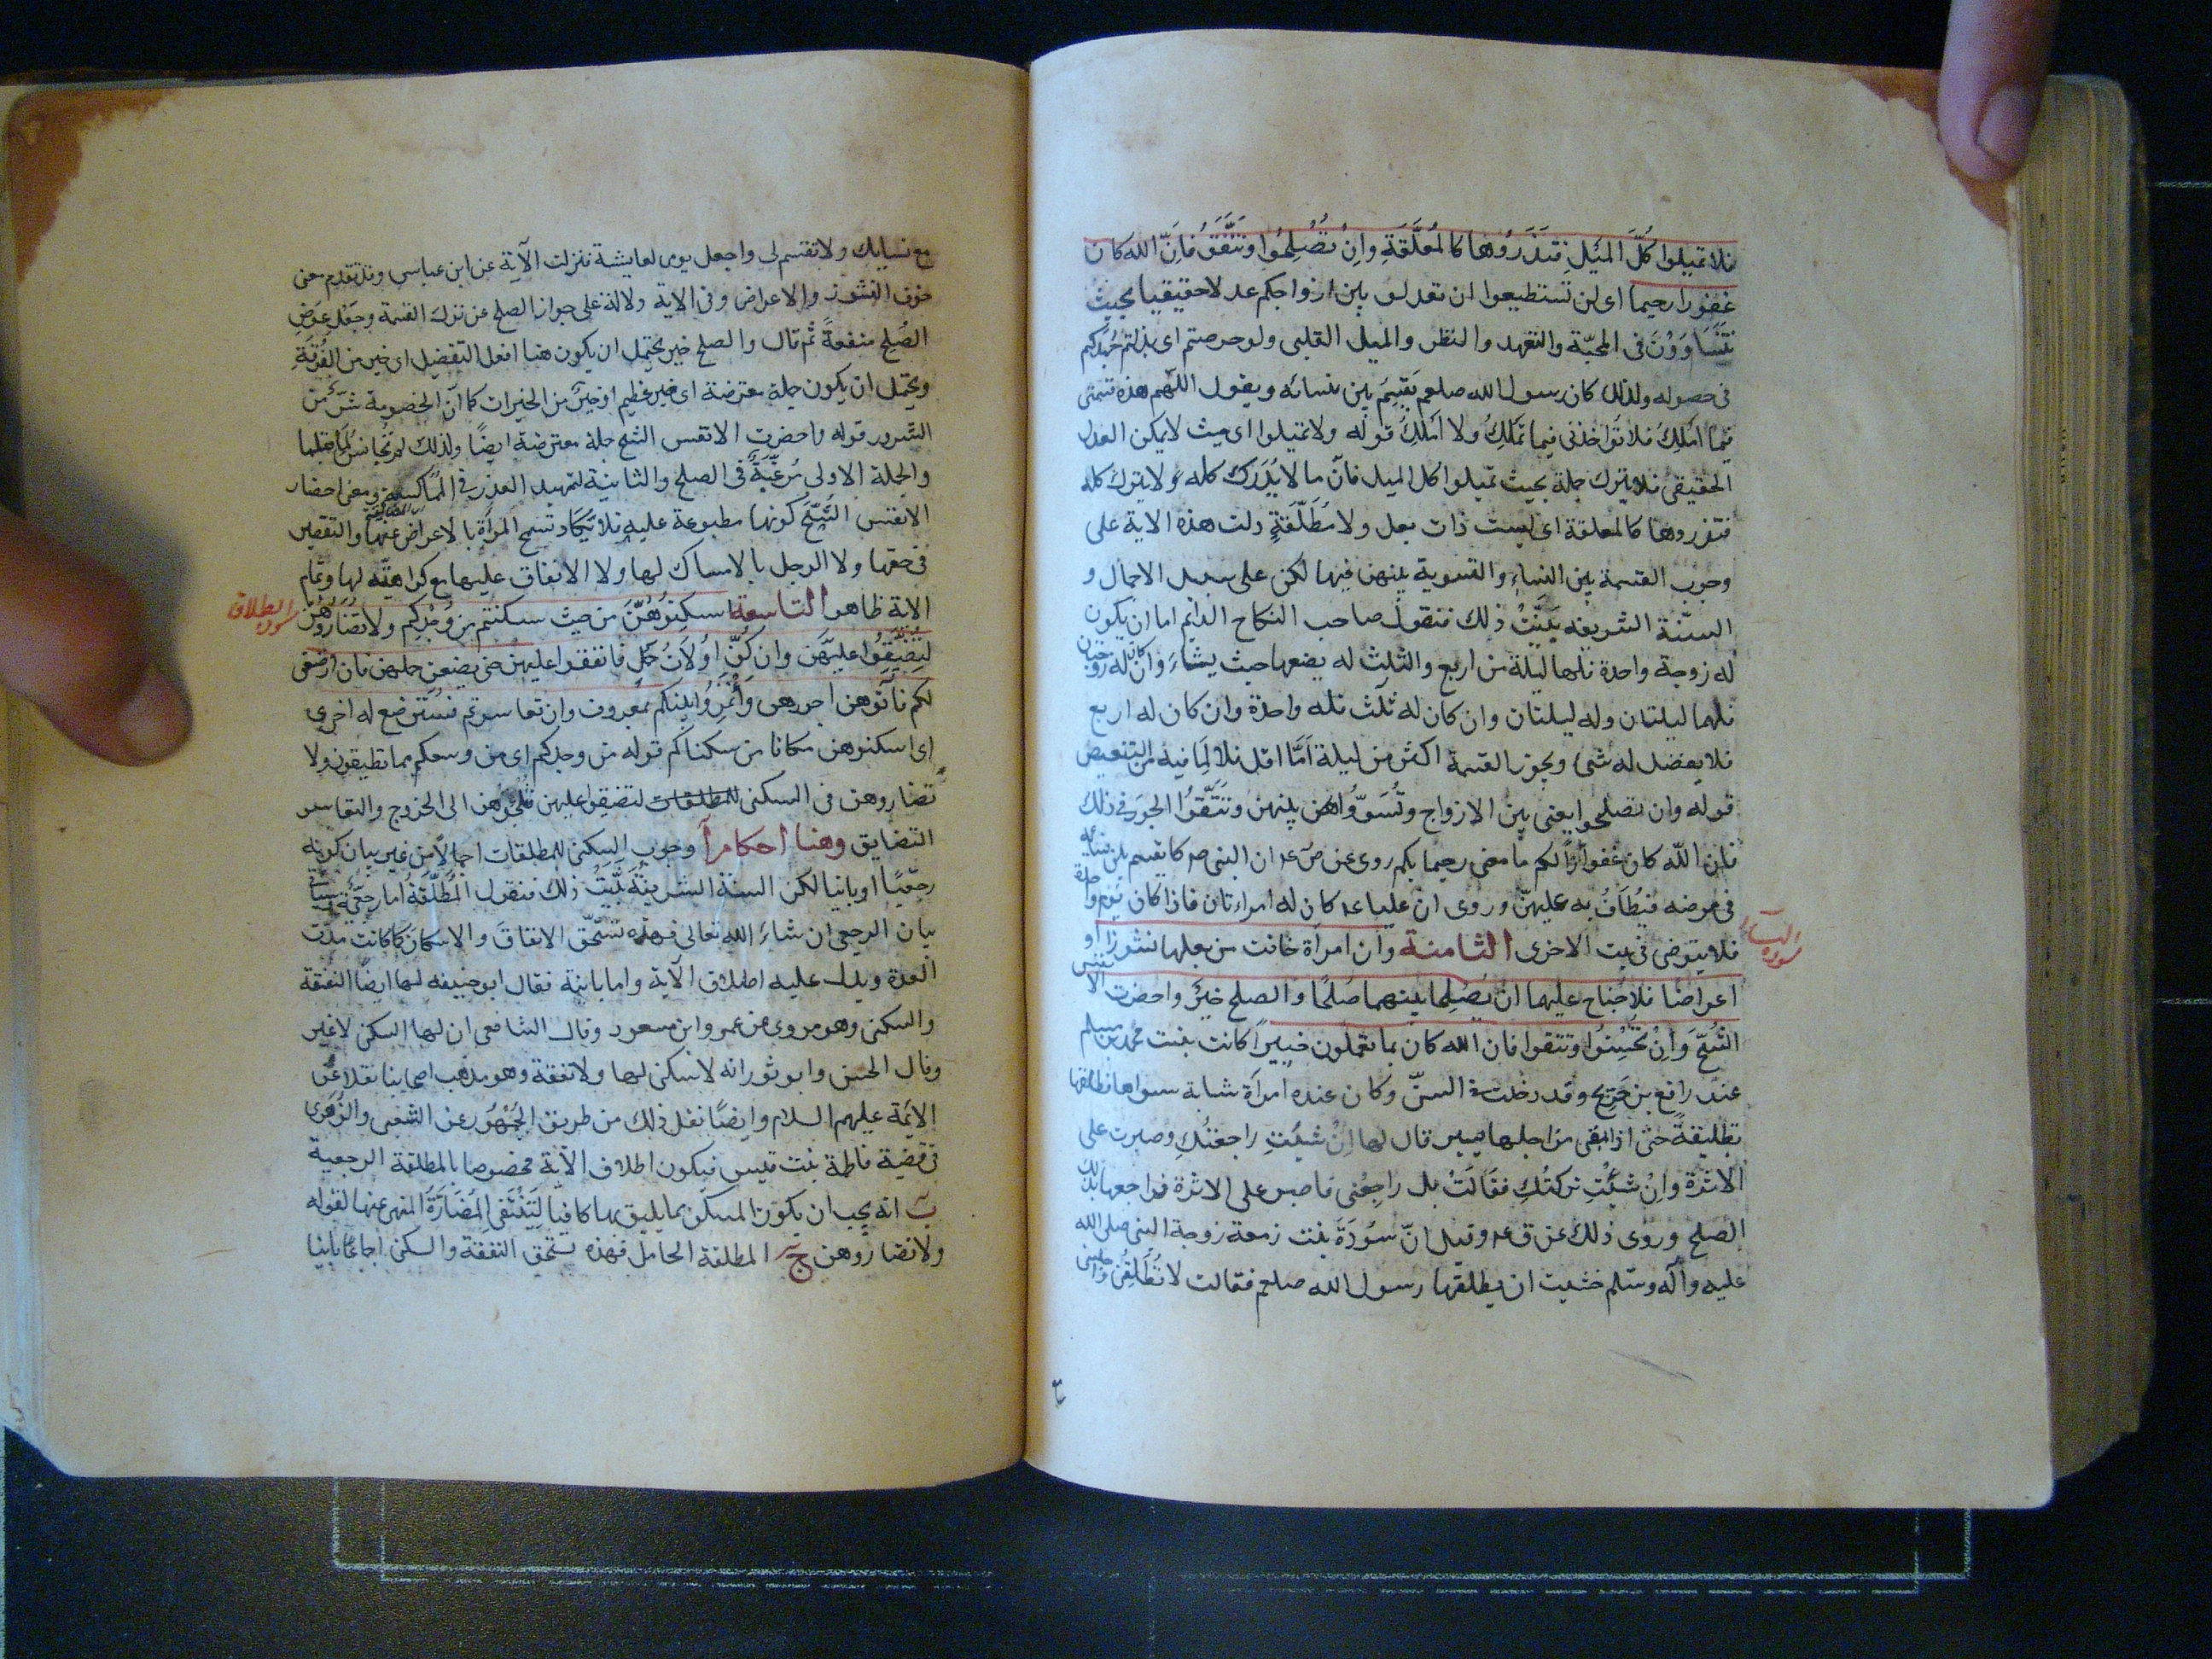 فلا تميلوا كُلَّ المَيْلِ فتَذَرُوها كالمُعَلَّقَةِ وإنْ تُصْلِحُوا وتَتَّقُوا فإنّ الله كان
غفورا رحيما اى لن تستطيعوا ان تعدلوا بين ازواجكم عدلا حقيقيا بحيث
تتساوون فى المحبّة والتعهد والنظر والميل القلبى ولو حرصتم اى بذلتم جهدكم
فى حصوله ولذلك كان رسول الله صلعم يقسم بين نسائه ويقول اللّهم هذه قسمتى
فيما املك فلا تؤاخذنى فيما تملك ولا املك قوله ولا تميلوا اى حيث لا يمكن العدل
الحقيقى فلا يترك جملة بحيث تميلوا كل الميل فانّ ما لا يُدْرَك كله لا يترك كله
فتذروها كالمعلقة اى ليست ذات بعل ولا مُطَلَّقَةٍ دلت هذه الاية على
وجوب القسمة بين النساء والتسوية بينهن فيها لكن على سبيل الاجمال و
السنّة الشريفه بَيَّنَتْ ذلك فنقول صاحب النكاح الدائم اما ان يكون
له زوجة واحدة فلها ليلة من اربع والثلث له يضعها حيث يشاء وان كانله زوجتان
فلهما ليلتان وله ليلتان وان كان له ثلث فله واحدة وان كان له اربع
فلا يفضل له شئ ويجوز القسمة اكثر من ليلة امّا اقل فلا لما فيه من التنغيص
قوله وان تصلحوا يعنى بين الازواج وتُسَوُّوا بينهن وتَتَّقُوا الجور فى ذلك
فان الله كان غفورا لكم ما مضى رحيما بكم روى عن ص ع ان النبى ص كا يقسم بين نسائه
فى مرضه فيُطَافُ به عليهنّ وروى ان عليا ع كان له امراءتان فاذا كان يوم واحدة
فلا يتوضى فى بيت الاخرى الثامنة وان امرأة خافت من بعلها نشوزا او
سورة النساء
اعراضا فلا جناح عليهما ان يصلحا بينهما صلحا والصلح خير واحضرت الانفس
الشُّحَّ وانْ تُحْسِنُوا وتتقوا فان الله كان بما تعملون خبيرا كانت بنت محمد بن مسلم
عند رافع بن خديج وقد دخلت فى السنّ وكان عنده امرأة شابة سواها فطلقها
تطليقةً حتى اذا بقى من اجلها يسير قال لها إنْ شِئْتِ راجعتُكِ وصبرت على
الاثرة وإنْ شئْتِ تركتُكِ فقَالَتْ بل راجِعْنى فاصبر على الاثرة فراجعها بذلك
الصلح وروى ذلك عن ق ع وقيل انّ سَوْدَةَ بنت زمعة زوجة النبى صلى الله
عليه وآله وسلم خشيت ان يطلقها رسول الله صلعم فقالت لا تُطَلِّقْنى واجلسنى
مع نسايك ولا تقسم لى واجعل يومى لعايشة فنزلت الآية عن ابن عباس وقد تقدم معنى
خوف النشوز والاعراض وفى الاية دلالة على جواز الصلح عن ترك القسمة وجعل عوض
الصُلح منفعةً ثم قال والصلح خير يحتمل ان يكون هنا افعل التفضيل اى خير من الفُرْقَةِ
ويحتمل ان يكون جملة معترضة اى خير عظيم او خيرٌ من الخيرات كما انّ الخصومة شرٌّ من
الشرور قوله واحضرت الانفس الشح جملة معترضة ايضًا ولذلك لم تُجانس ما قبلها
والجملة الاولى مُرَغِّبَةٌ فى الصلح والثانية لتمهيد العذر فى المماكسة ومعنى احضار
الانفس الشُّحَّ كونها مطبوعة عليه فلا تكاد تسمح المرأة بالاعراض عنها والتقصير
فى حقها ولا الرجل بالامساك لها ولا الانفاق عليها مع كراهته لها وتمام
الاية ظاهر التاسعة اسكِنوهُنَّ من حيث سكنتم من وُجْدِكم ولا تُضَارّوهُنّ
سورة الطلاق
لِتُضَيِّقُوا عليهنّ وان كُنّ اولَاتِ حَملٍ فانفقوا عليهن حتى يضعن حملهن فان ارضعن
لكم فآتُوهن اجورهن وَأْتَمِرُوا بينكم بمعروف وان تعاسرتم فستُرْضِع له اخرى
اى اسكنوهن مكانا من سكناكم قوله من وجدكم اى من وسعكم مما تطيقون ولا
تضاروهن فى السكنى للمطلقات لتضيقوا عليهن فتُلْجِؤهن الى الخروج والتعاسر
التضايق وهنا احكام آ وجوب السكنى للمطلقات اجمالًا من غير بيان كونه
رجعيًّا او باينا لكن السنّة الشريفَة بَيَّنَتْ ذلك فنقول المُطَلَّقَةُ اما رجعيّة سيأتى
بيان الرجعى ان شاء الله تعالى فهذه تستحق الانفاقَ والاسكان كما كانت مدّت
العدة ويدل عليه اطلاق الآية واما باينة فقال ابو حنيفه لها ايضًا النفقة
والسكنى وهو مروى عن عمر وابن مسعود وقال الشافعى ان لها السكنى لا غير
وقال الحسن وابو ثور انه لا سكنى لها ولا نفقة وهو مذهب اصحابنا نقلا عن
الايمة عليهم السلام وايضًا نقل ذلك من طريق الجُمْهُور عن الشعبى والزُهرى
فى قضية فاطمة بنت قيس فيكون اطلاق الآية مخصوصا بالمطلقة الرجعية
ب انه يجب ان يكون المسكن بما يليق بها كافيا لِيَنْتَفى المُضَارَّةُ المنهى عنها لقوله
ولا تضاروهن ج المطلقة الحامل فهذه تستحق النفقة والسكنى اجماعًا باينا